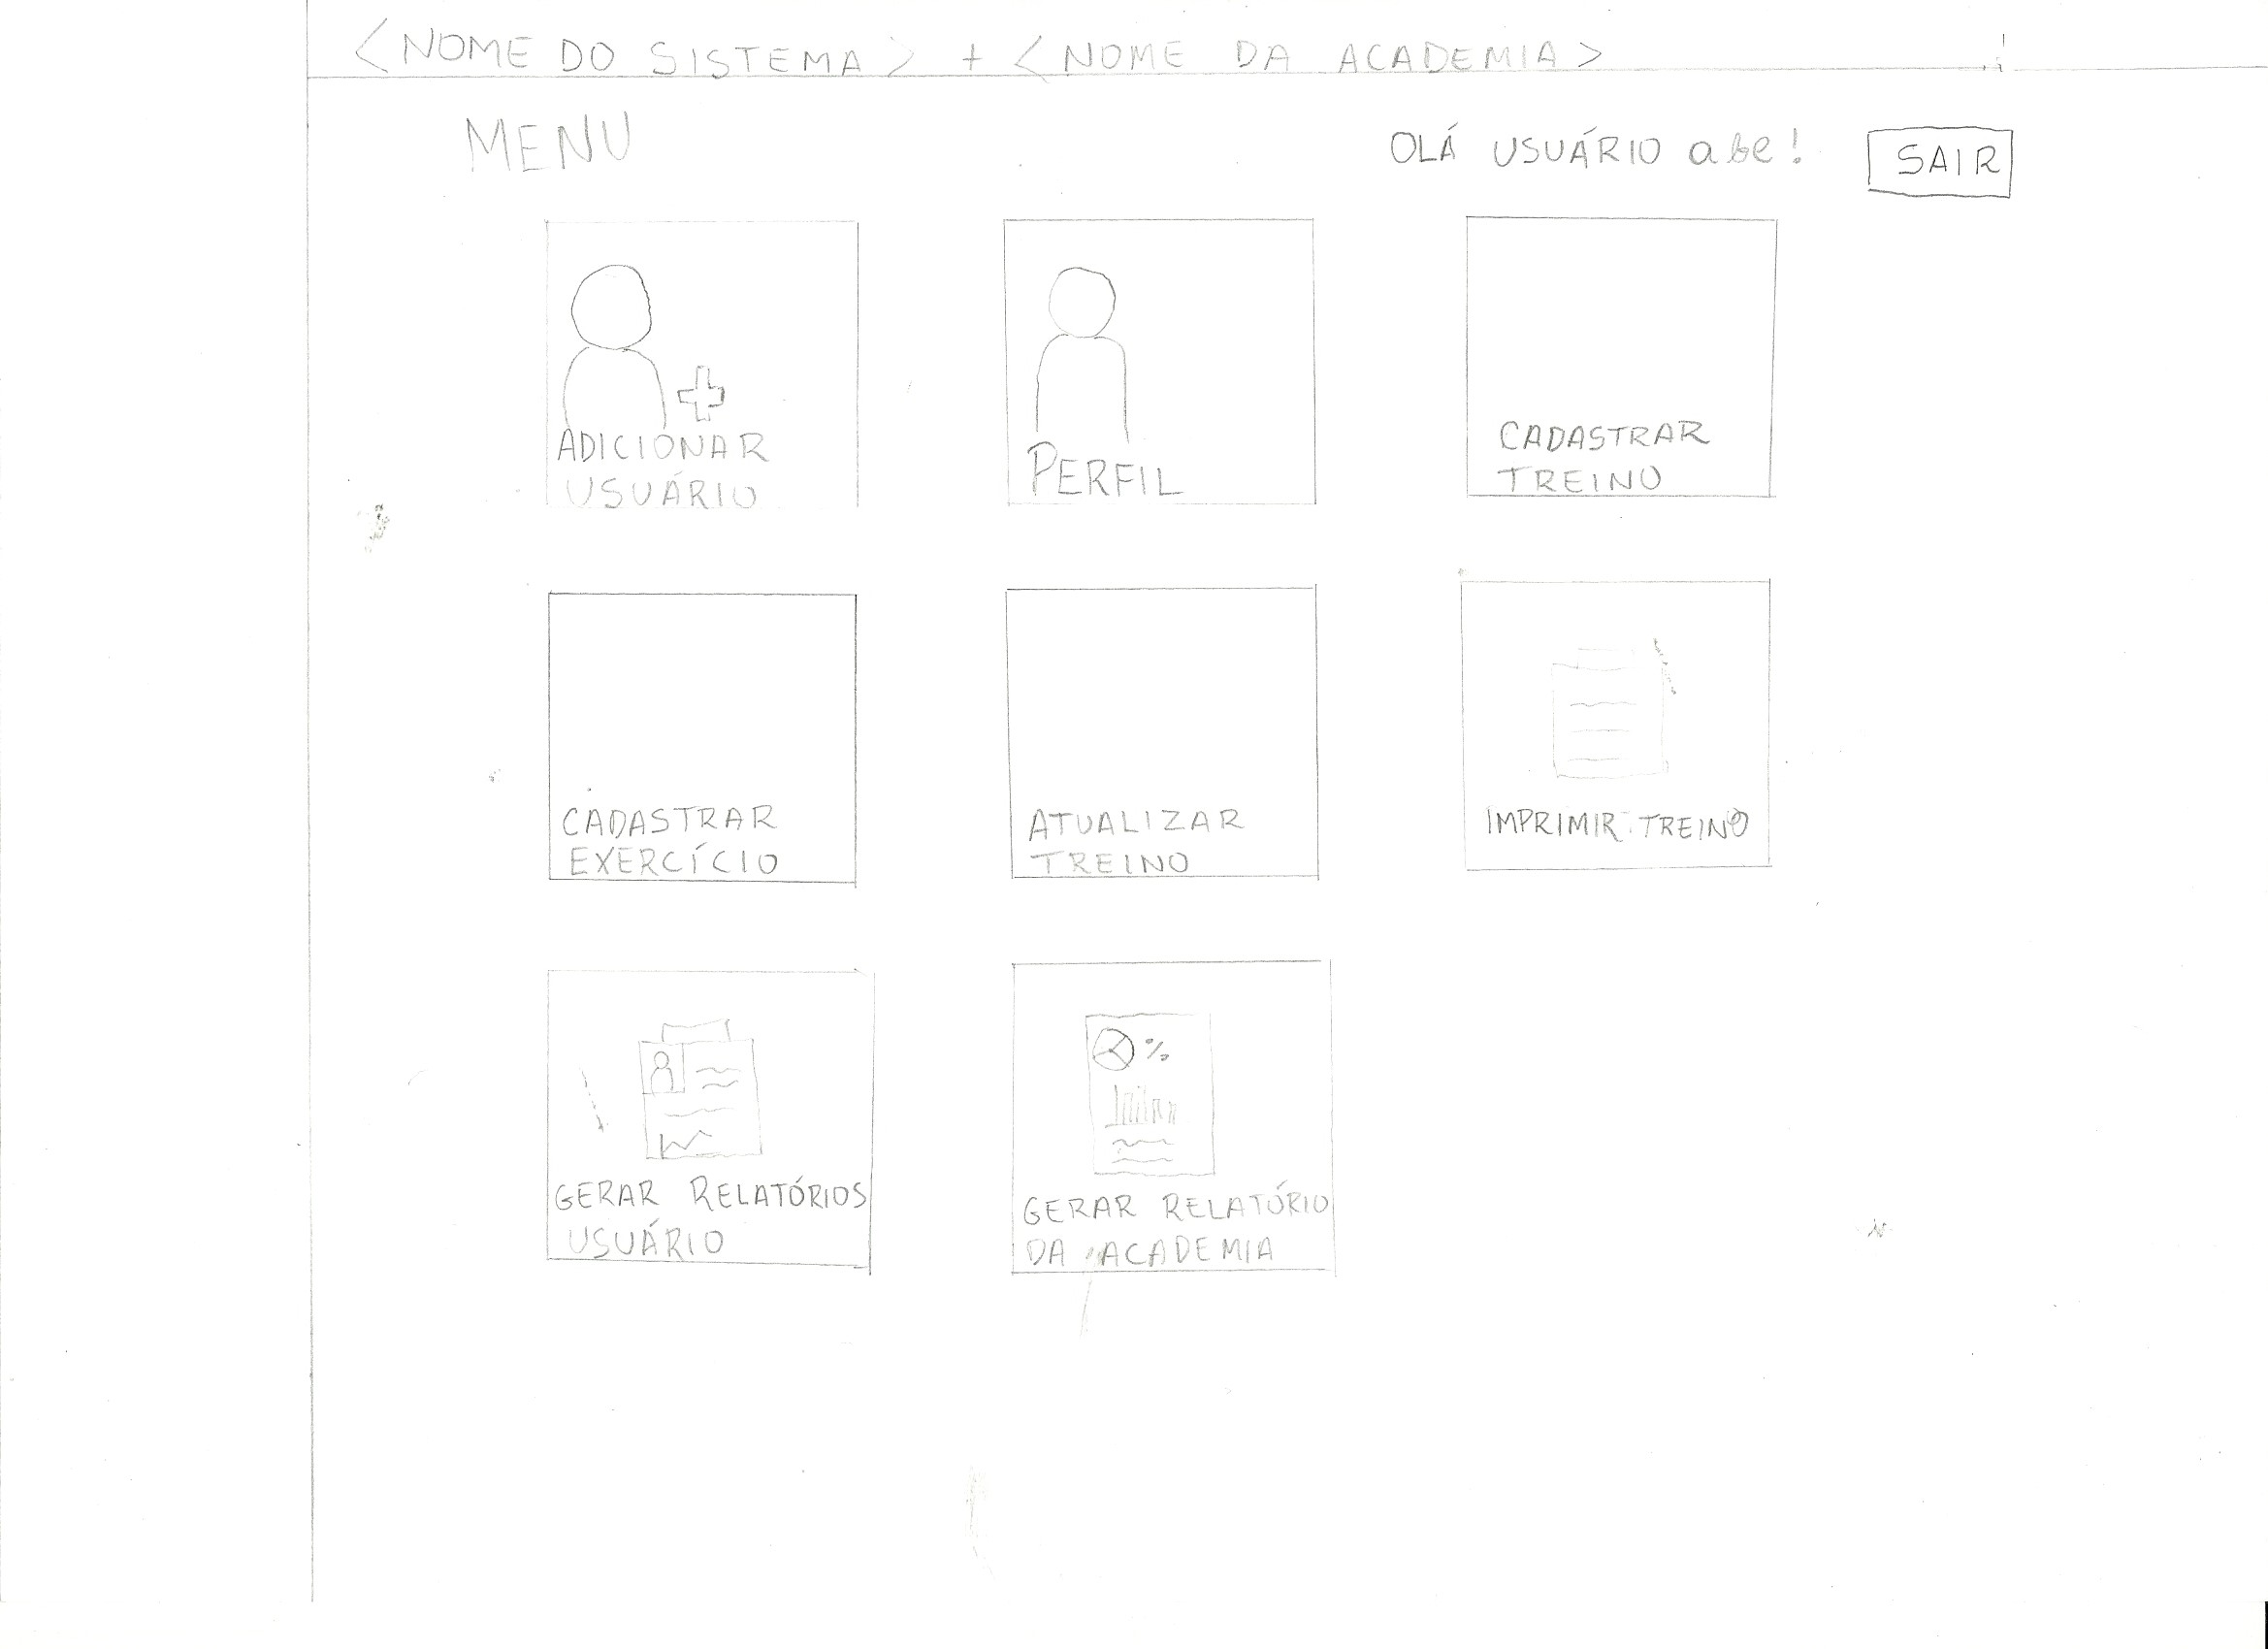 <NOME DO SISTEMA> + <NOME DA ACADEMIA>
MENU
OLÁ USUÁRIO abc!
SAIR
ADICIONAR
USUÁRIO
PERFIL
CADASTRAR
TREINO
CADASTRAR
EXERCÍCIO
ATUALIZAR
TREINO
IMPRIMIR TREINO
%
GERAR RELATÓRIOS
USUÁRIO
GERAR RELATÓRIO
DA ACADEMIA